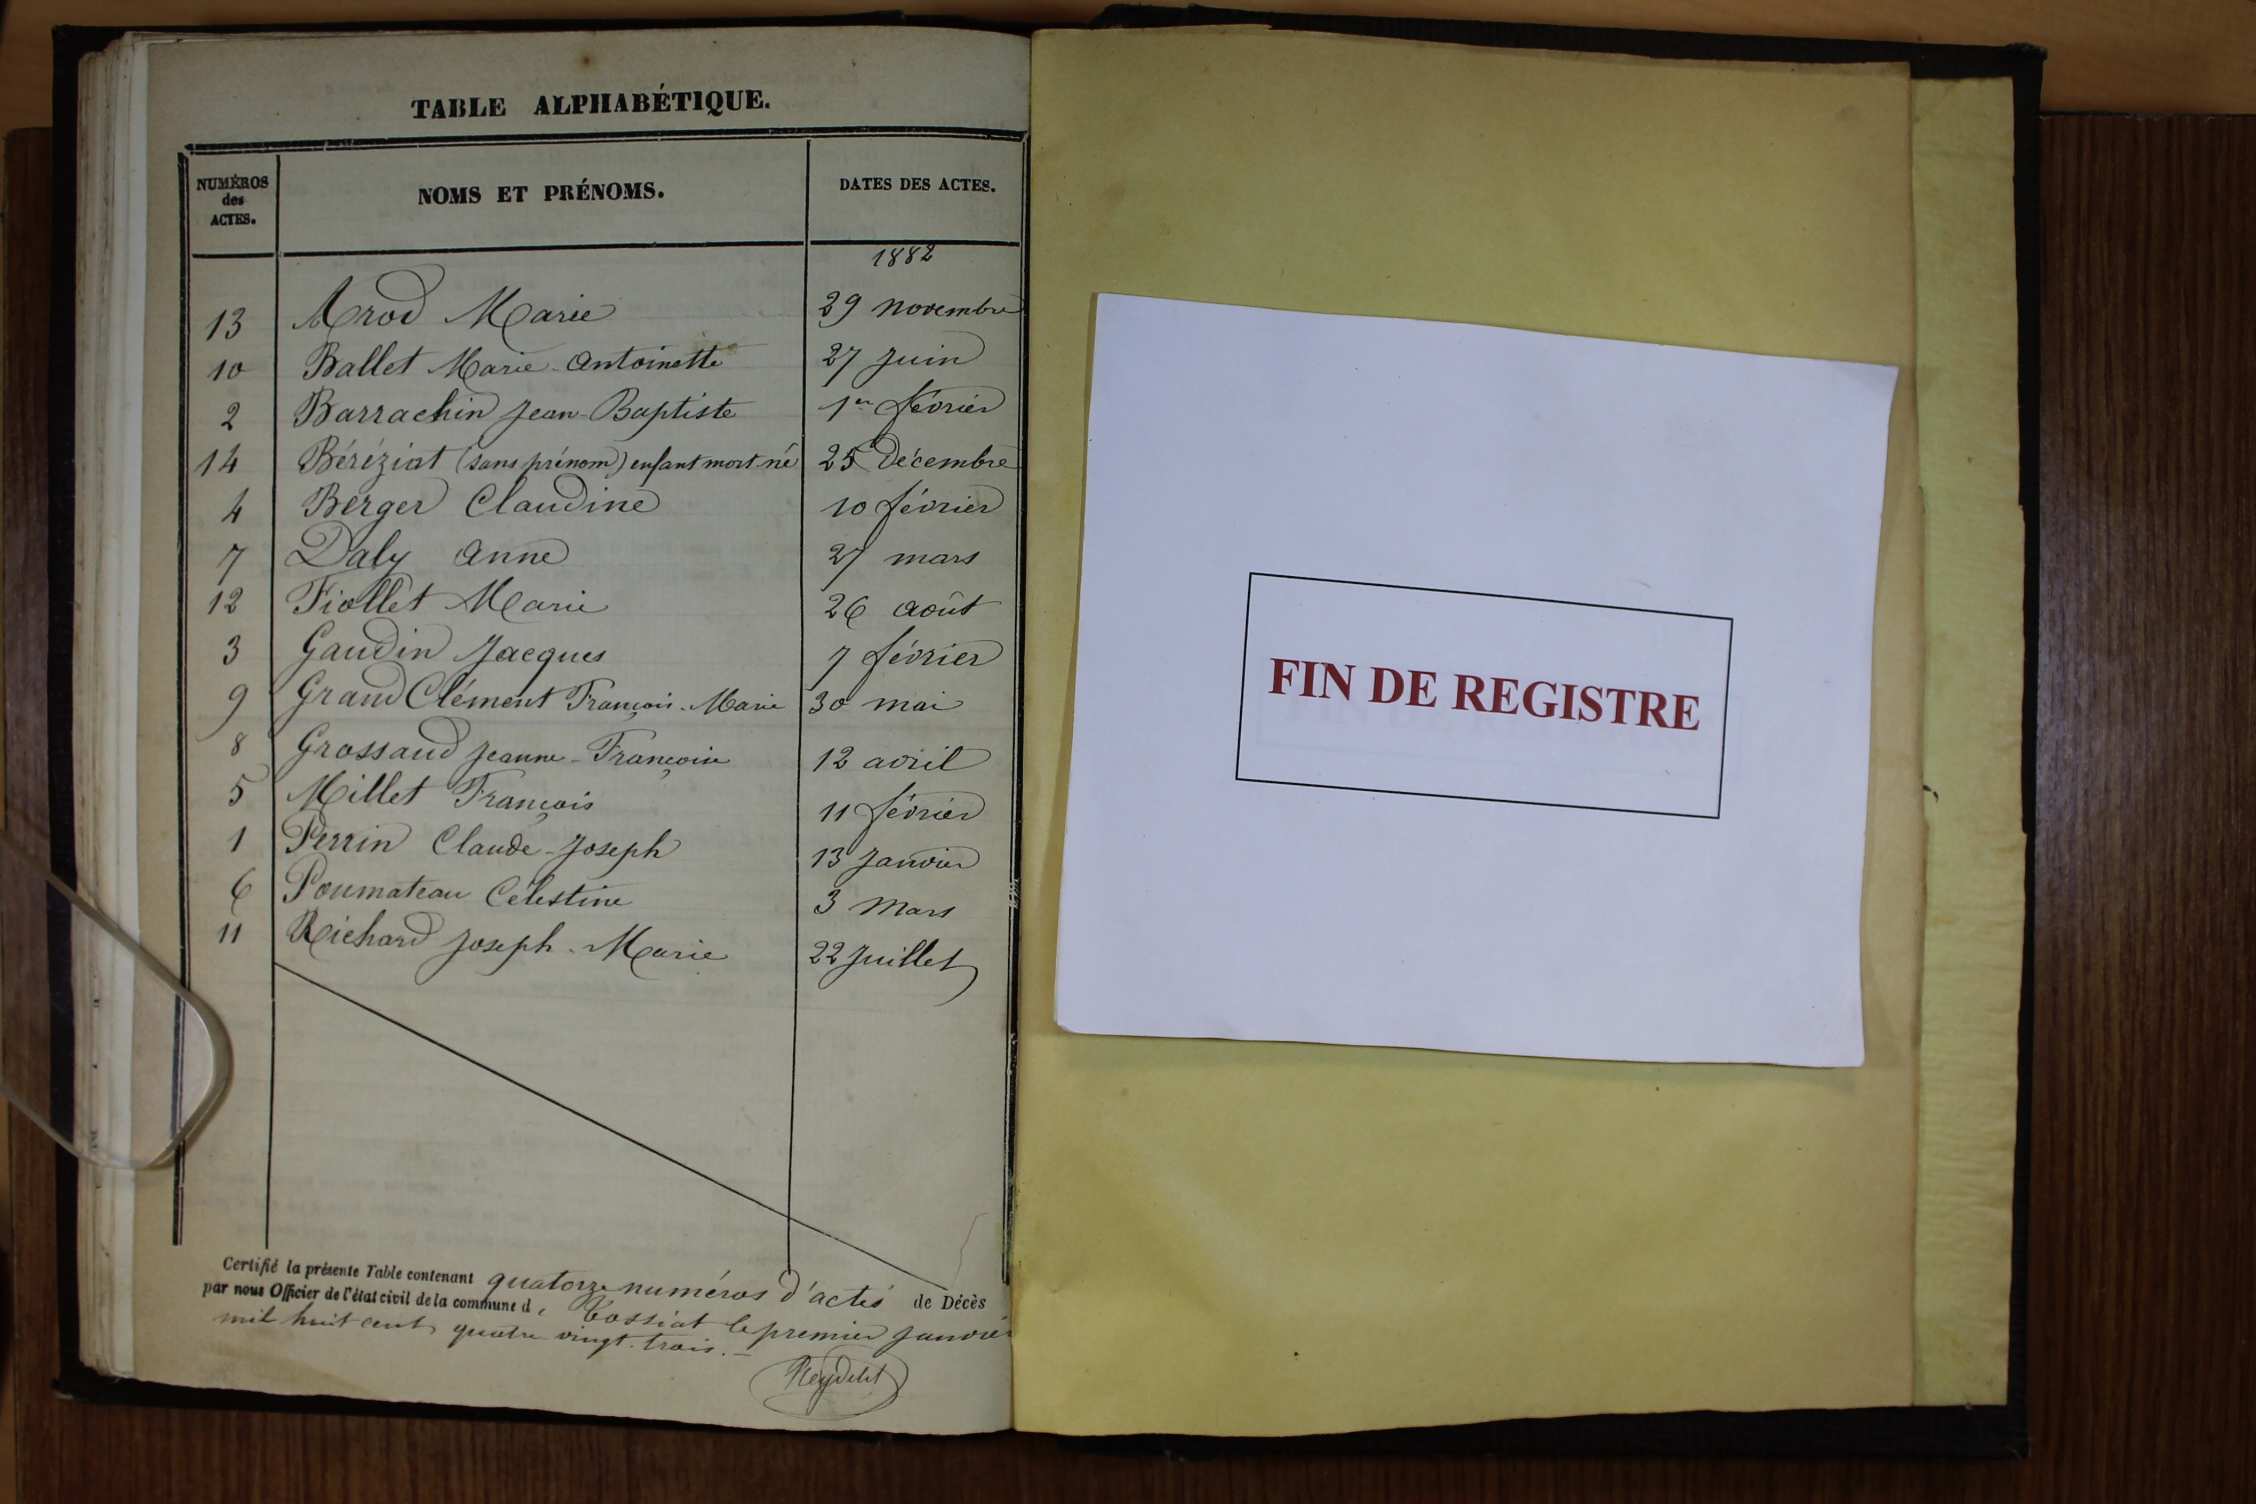 TABLE ALPHABÉTIQUE.
NUMÉROS des ACTES. NOMS ET PRÉNOMS. DATES DES ACTES.
1882
13 Arod Marie 29 novembre
10 Ballet Marie-Antoinette 27 juin
2 Barrachin Jean-Baptiste 1er février
14 Béréziat (sans prénom) enfant mort-né 25 Décembre
4 Berger Claudine 10 février
7 Daly Anne 27 mars
12 Fiollet Marie 26 août
3 Gaudin Jacques 7 février
9 Grand Clément François-Marie 30 mai
8 Grossaud Jeanne-Françoise 12 avril
5 Millet François 11 février
1 Perrin Claude-Joseph 13 Janvier
6 Poumateau Célestine 3 Mars
11 Richard Joseph-Marie 22 Juillet
Certifié la présente Table contenant quatorze numéros d'actes de Décès
par nous Officier de l'état civil de la commune d, Tossiat le premier janvier
mil huit cent quatre vingt-trois.-
Reydelet
FIN DE REGISTRE